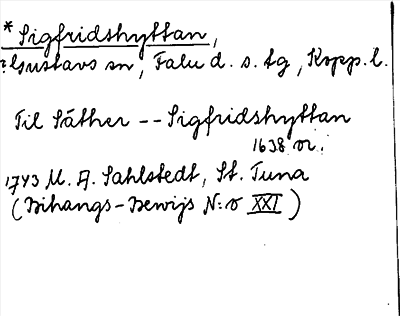 * Sigfridshyttan,
? Gustavs sn, Falu d. s. tg, Kopp. l.
Til Säther -- Sigfridshyttan
1638 or.
1743 M. A. Sahlstedt, St. Tuna
(Bihangs-Bewijs N:o XXI)